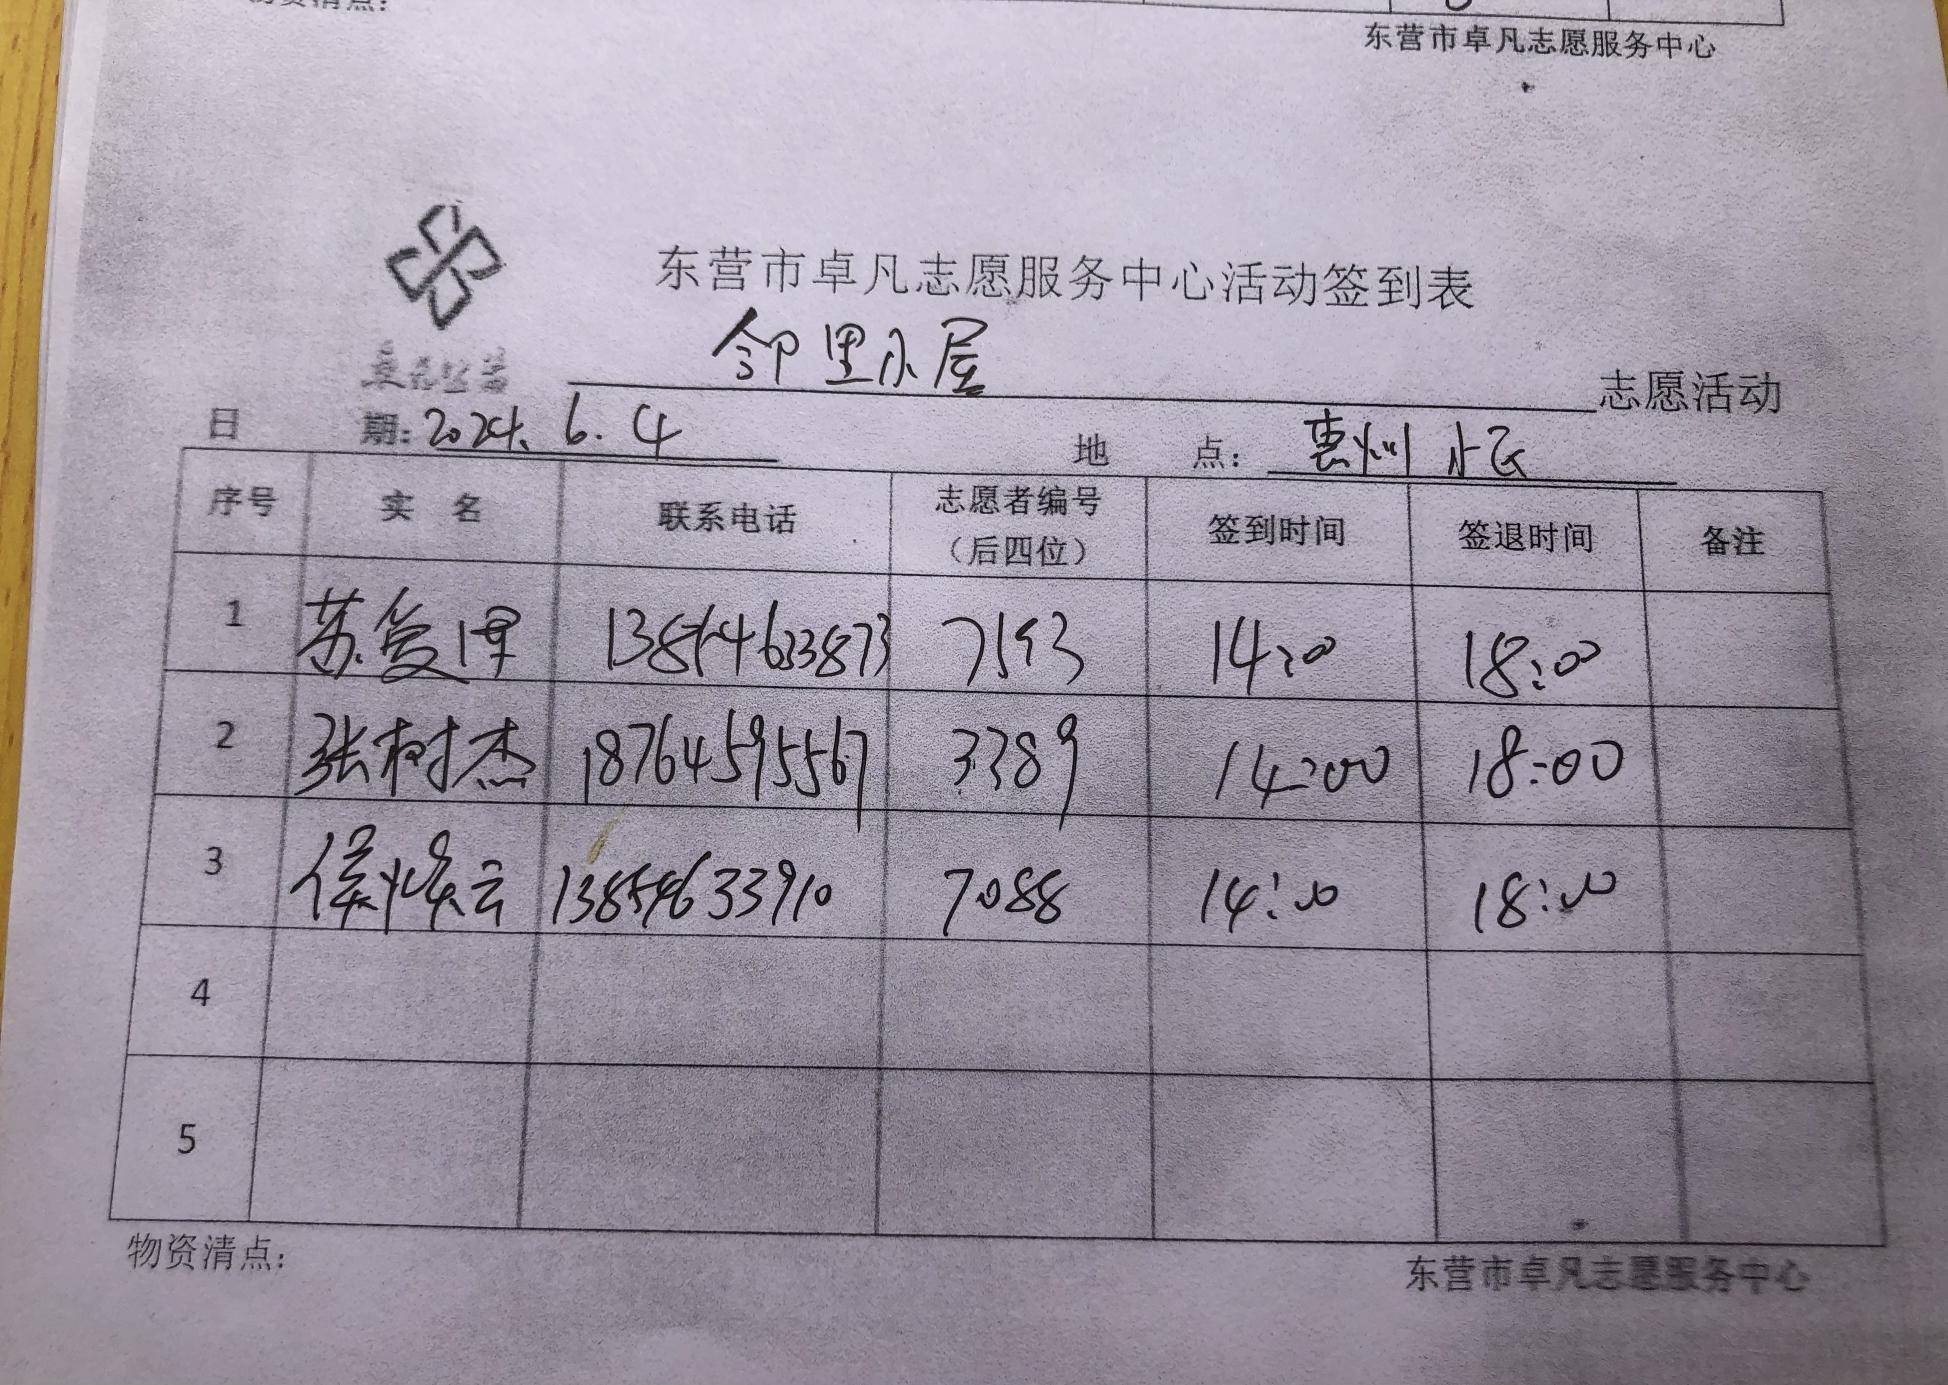 物资清点：
东营市卓凡志愿服务中心
东营市卓凡志愿服务中心活动签到表
邻里小屋 志愿活动
日 期：2024.6.4 地 点：惠州小区
序号 实 名 联系电话 志愿者编号（后四位） 签到时间 签退时间 备注
1 苏爱 7593 14:00 18:00
2 张树杰 18764595567 3389 14:00 18:00
3 侯 云 13854633910 7088 14:00 18:00
4
5
物资清点：
东营市卓凡志愿服务中心